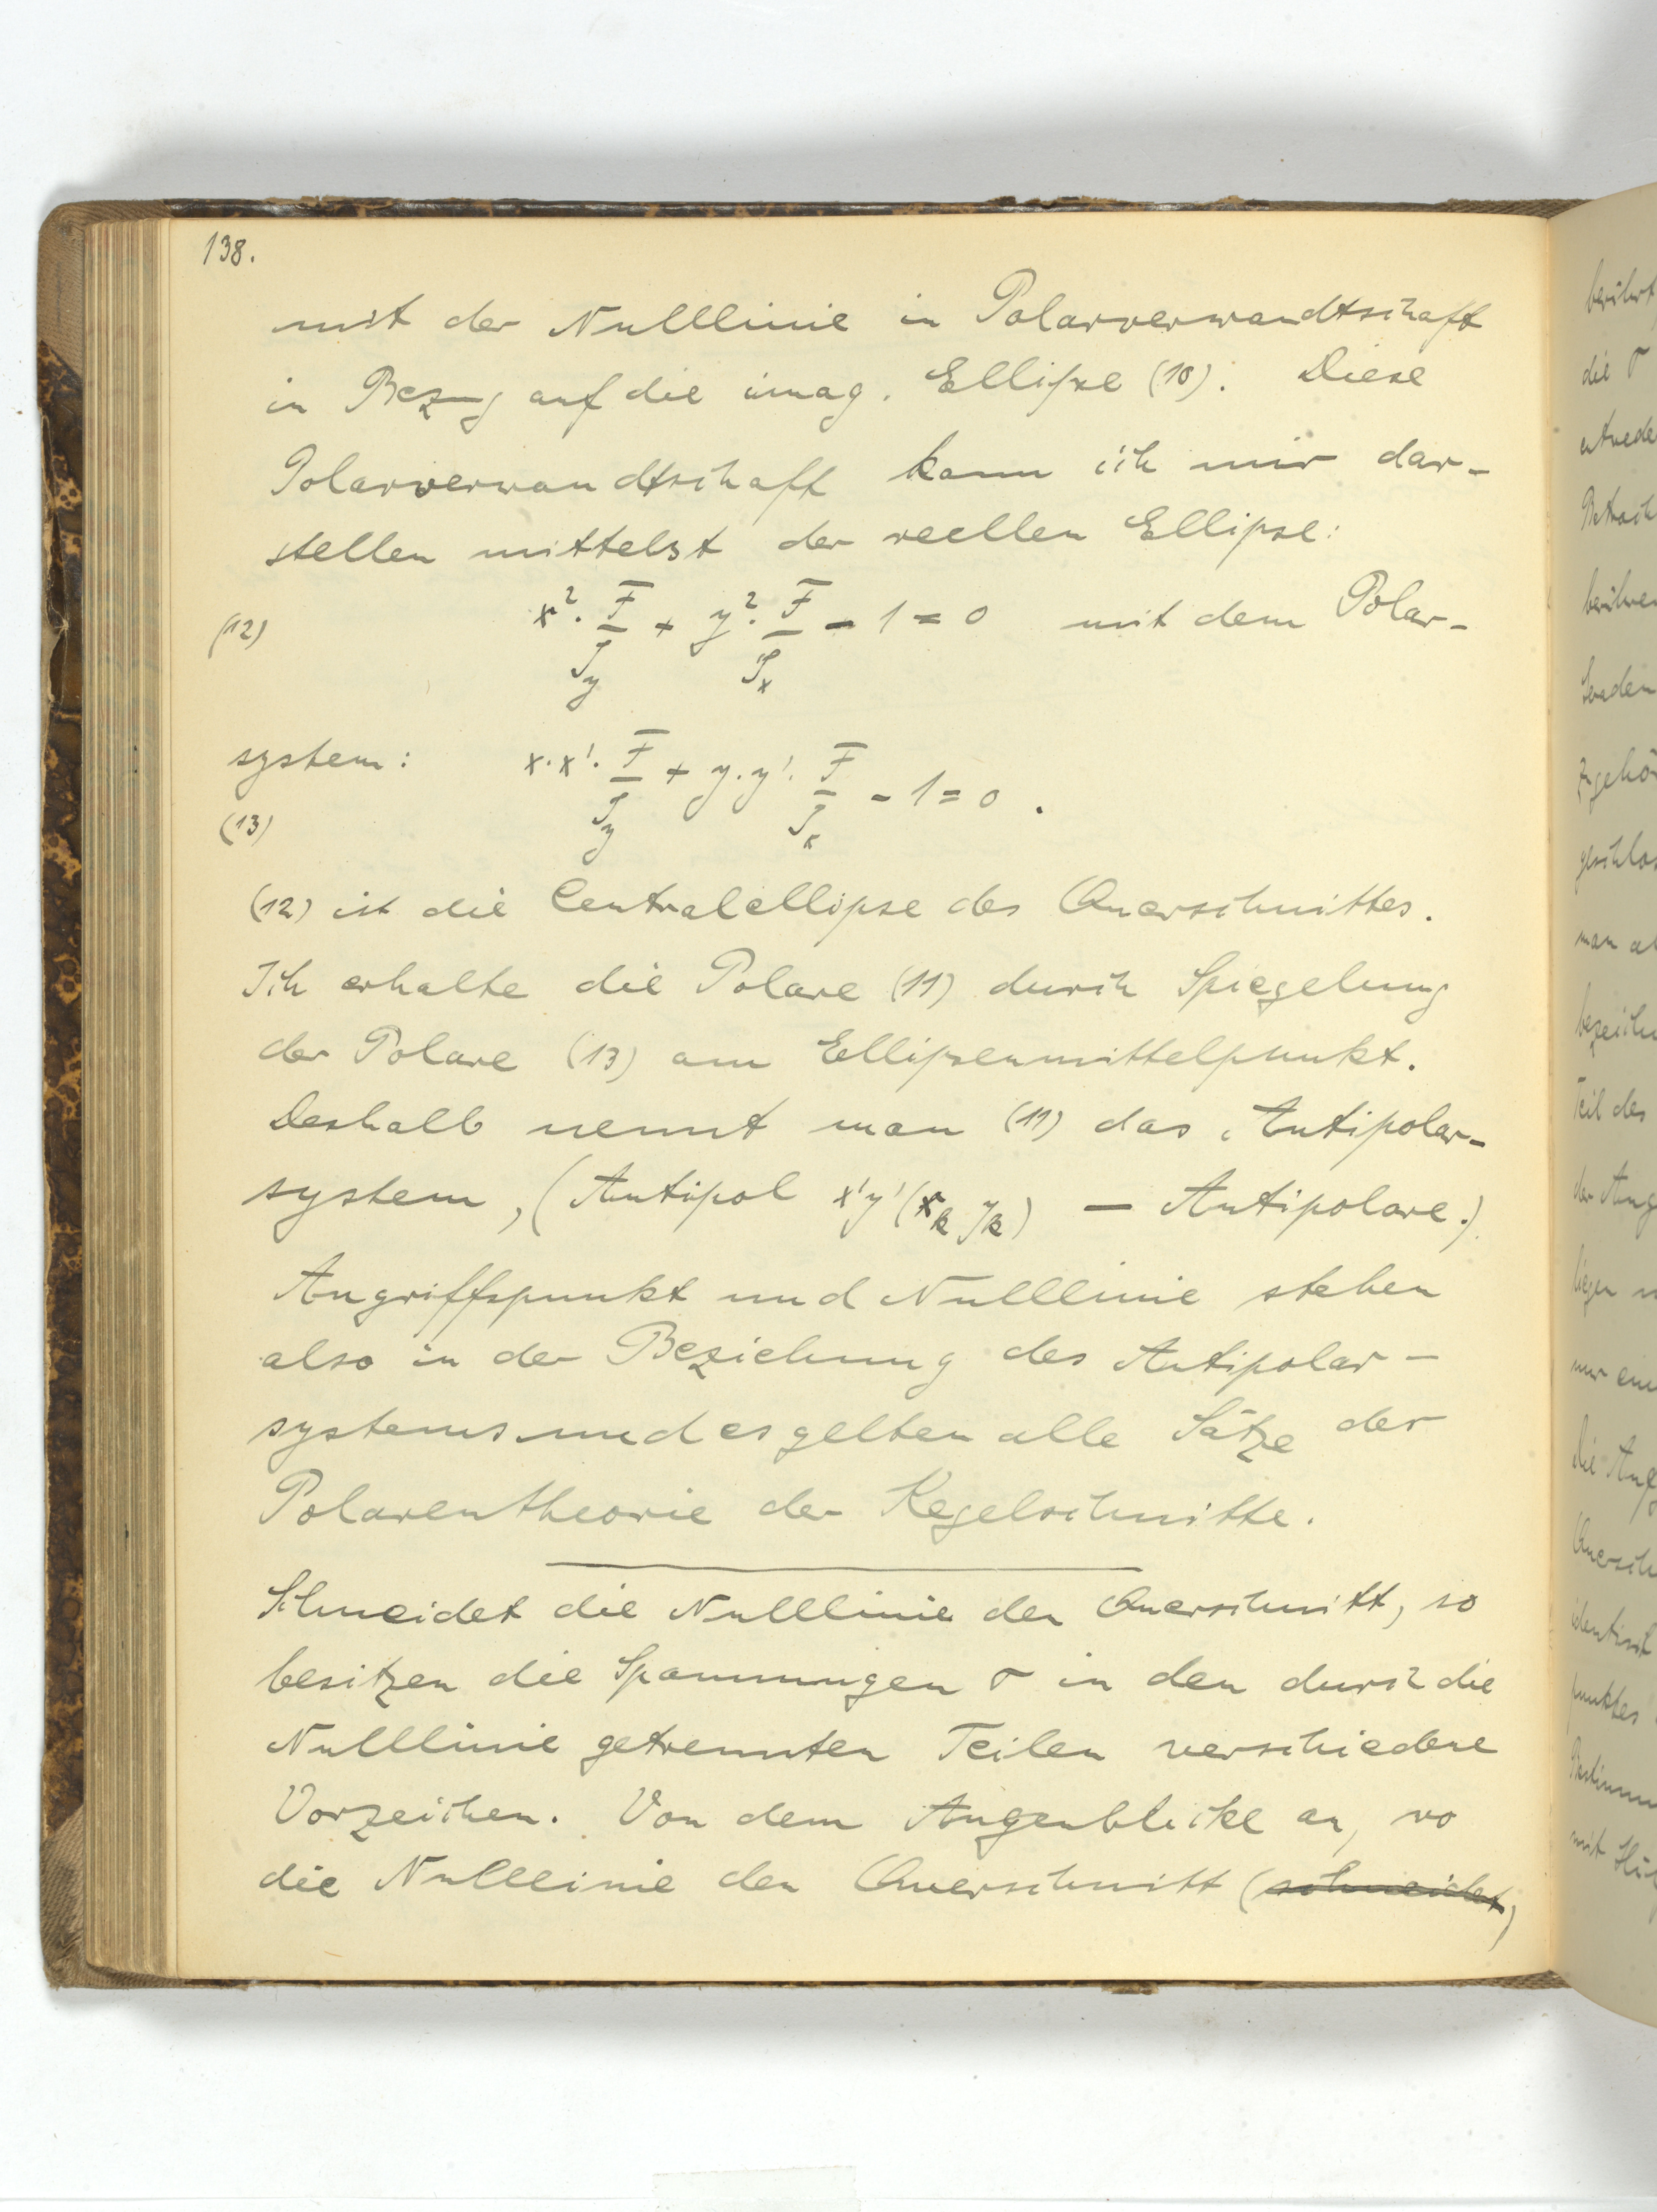 138.
mit der Nulllinie in Polarverwandtschaft
in Bezug auf die imag. Ellipse (10). Diese
Polarverwandtschaft kann ich mir dar-
stellen mittelst der reellen Ellipse:
(12) x² · F/Jy + y² · F/Jx - 1 = 0 mit dem Polar-
system: x·x' · F/Jy + y·y' · F/Jx - 1 = 0.
(13)
(12) ist die Centralellipse des Querschnittes.
Ich erhalte die Polare (11) durch Spiegelung
der Polare (13) am Ellipsenmittelpunkt.
Deshalb nennt man (11) das Antipolar-
system, (Antipol x'y' (xk yk) — Antipolare.)
Angriffspunkt und Nulllinie stehen
also in der Beziehung des Antipolar-
systems und es gelten alle Sätze der
Polarentheorie der Kegelschnitte.
Schneidet die Nulllinie den Querschnitt, so
besitzen die Spannungen σ in den durch die
Nulllinie getrennten Teilen verschiedene
Vorzeichen. Von dem Augenblicke an, wo
die Nulllinie den Querschnitt (schneidet)
berührt,
die σ
Betrach
zugehö
geschlos
man
bezeichn
Teil des
der Ang
liegen
nur ein
die Ang
Quersch
identisch
punktes
Bestimm
mit